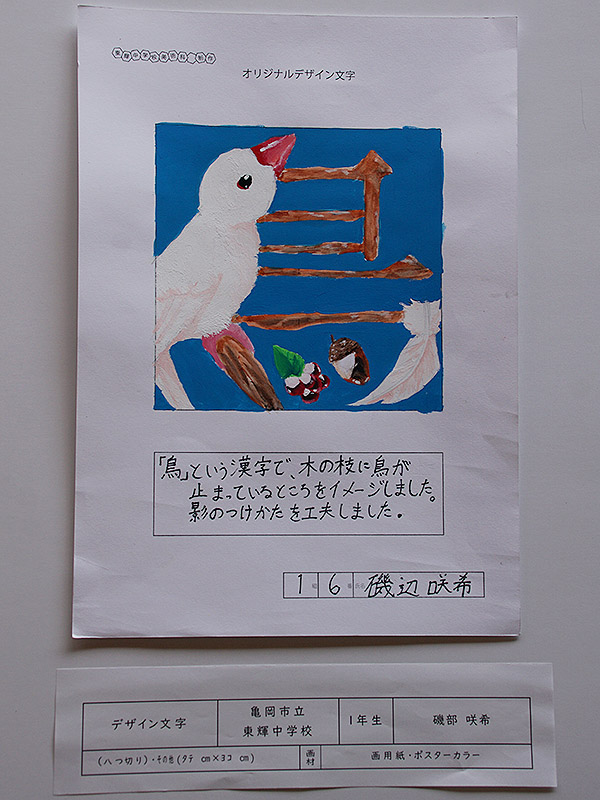 東輝中学校美術科 制作
オリジナルデザイン文字
「鳥」という漢字で、木の枝に鳥が
止まっているところをイメージしました。
影のつけかたを工夫しました。
1 組 6 番 氏名 磯辺 咲希
デザイン文字 亀岡市立 東輝中学校 1年生 磯部 咲希
(八つ切り)・その他(タテ cm×ヨコ cm) 画材 画用紙・ポスターカラー